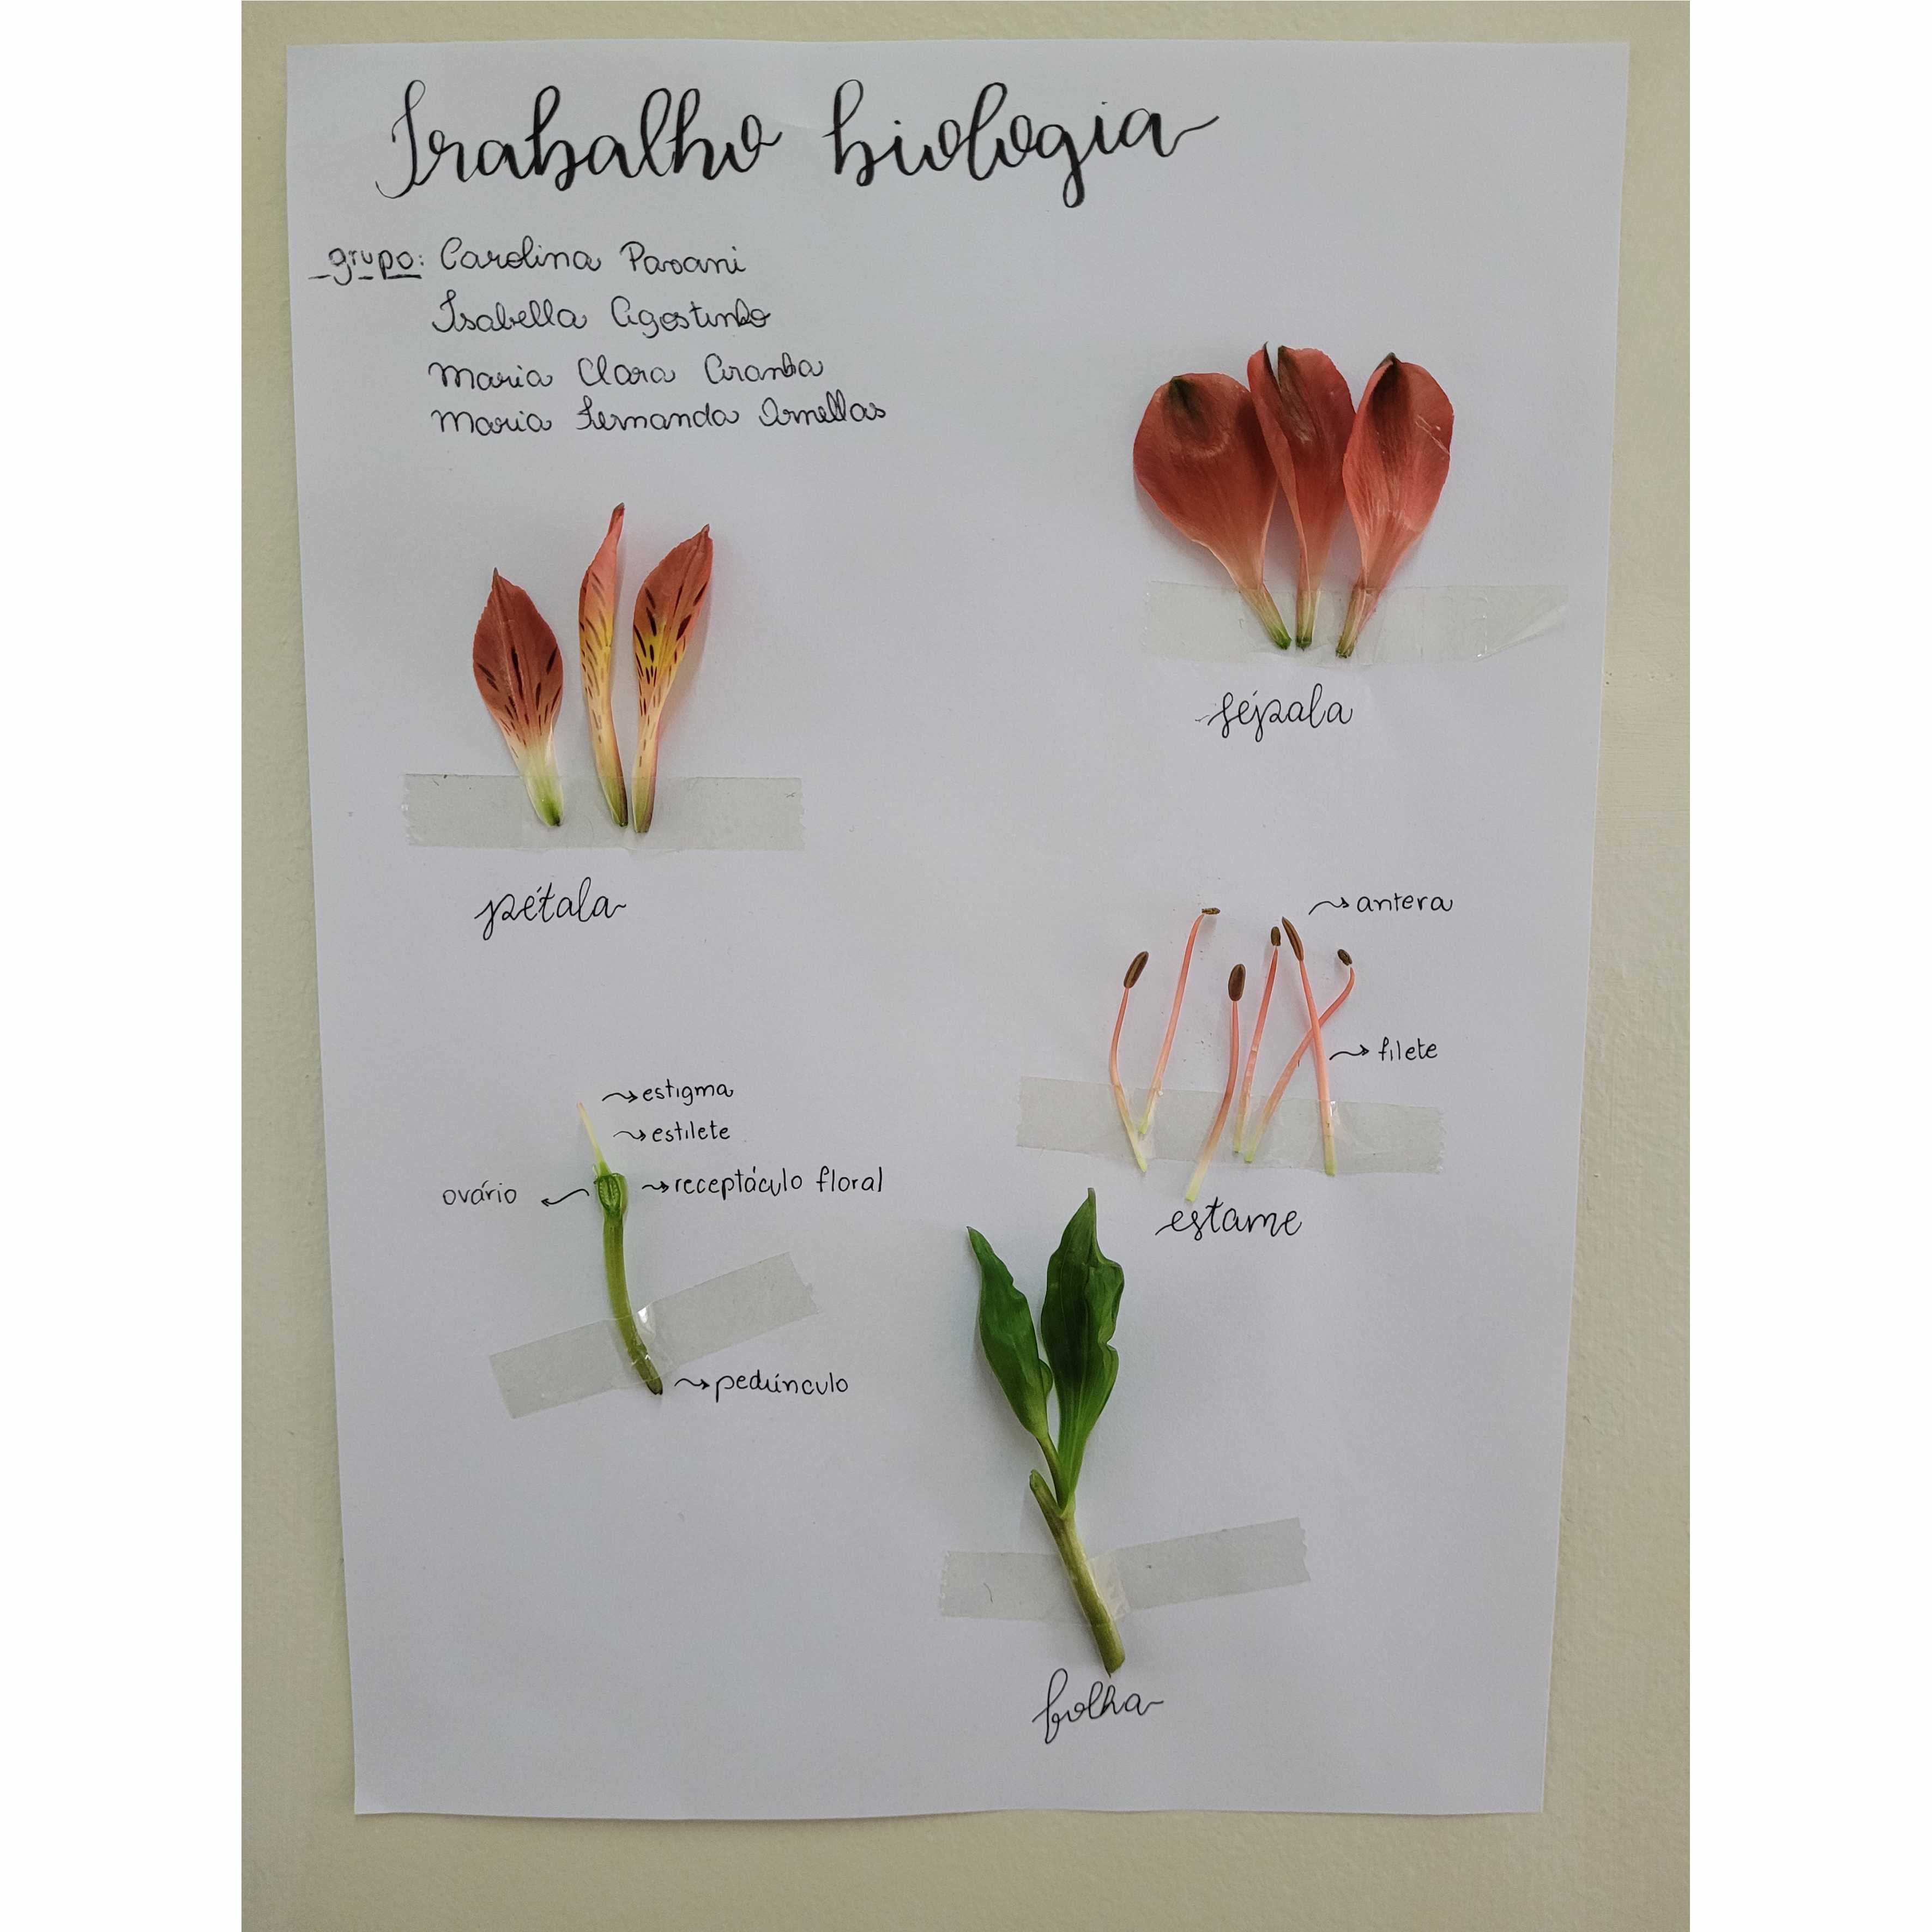 Trabalho biologia
grupo: Carolina Pavani
Isabella Agostinho
Maria Clara Aranha
Maria Fernanda Ornellas
sépala
pétala
antera
filete
estame
estigma
estilete
ovário
receptáculo floral
pedúnculo
folha